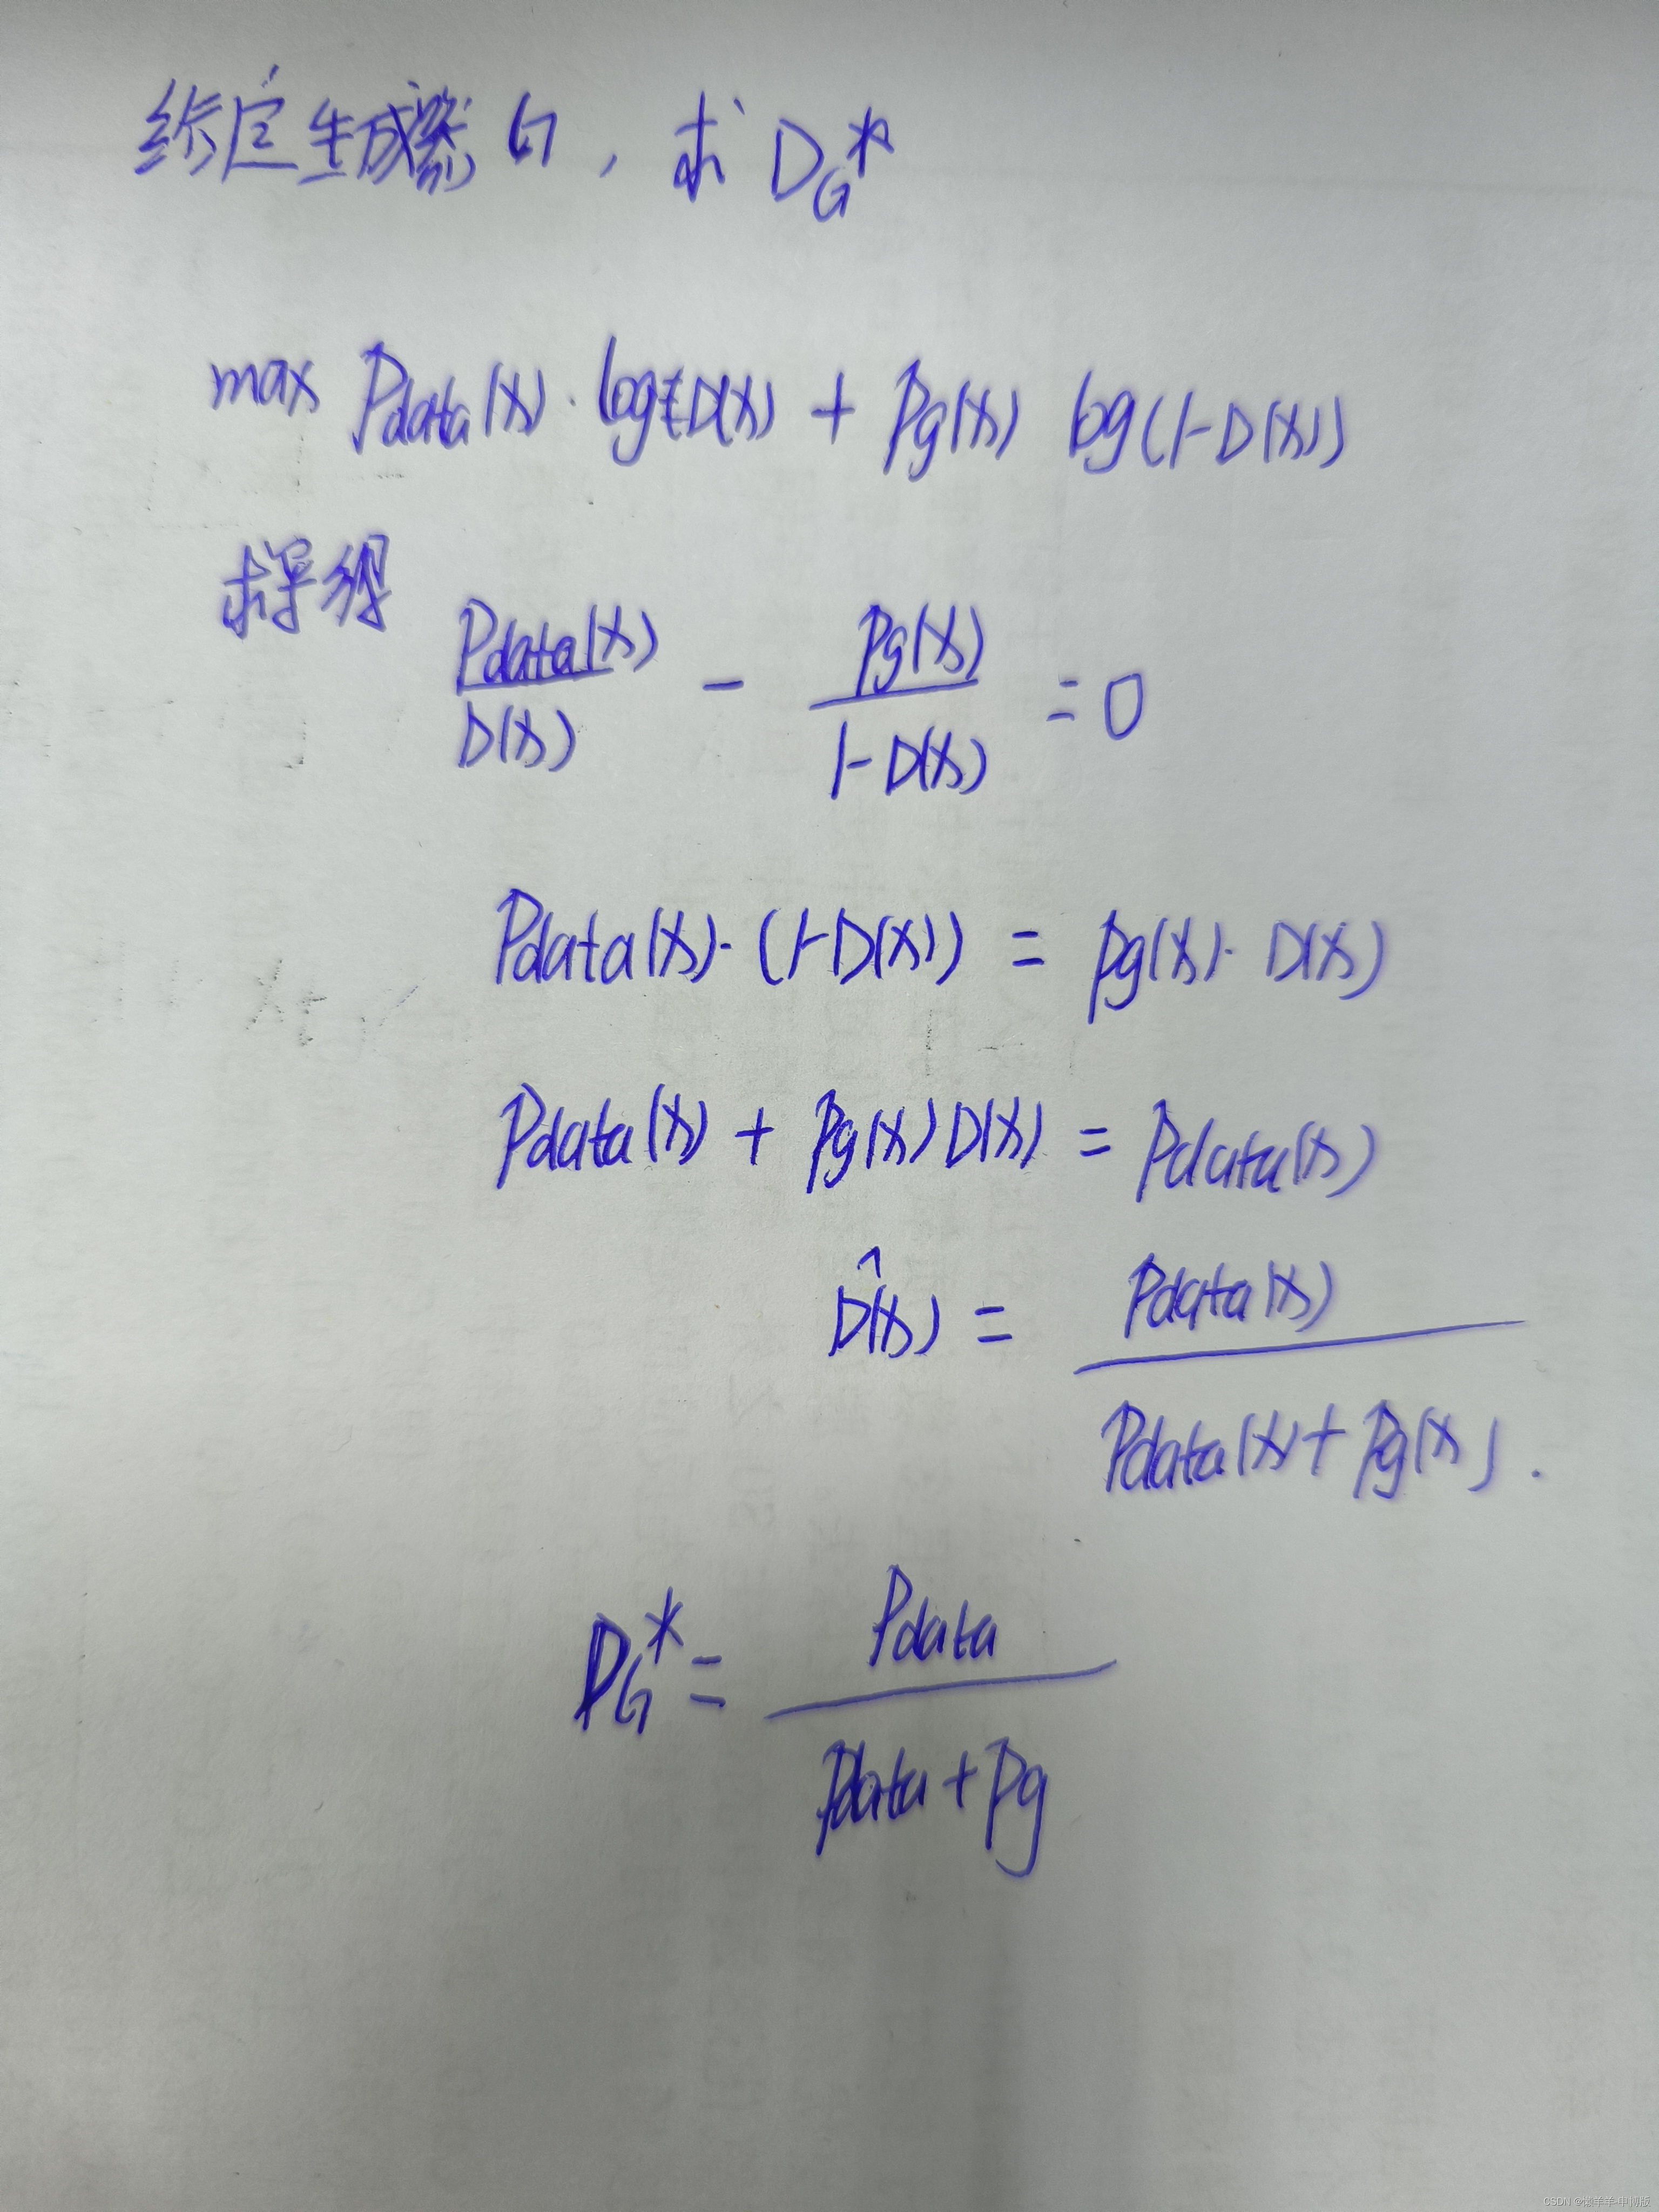 给定生成器 G , 求 D_G^*
max Pdata(x) · log D(x) + Pg(x) log(1-D(x))
求导得
Pdata(x)/D(x) - Pg(x)/(1-D(x)) = 0
Pdata(x)·(1-D(x)) = Pg(x)· D(x)
Pdata(x) + Pg(x)D(x) = Pdata(x)
D̂(x) = Pdata(x)/(Pdata(x)+Pg(x)) .
D_G^* = Pdata/(Pdata+Pg)